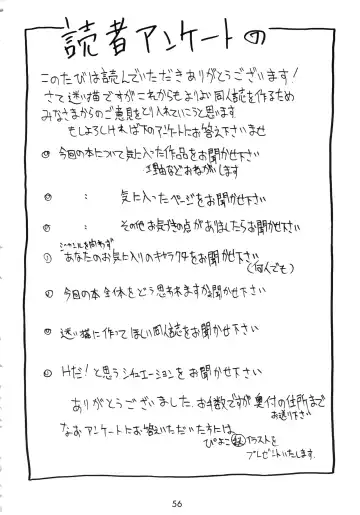 読者アンケートの
このたびは読んでいただきありがとうございます!
さて迷い猫ですがこれからもよりよい同人誌を作るため
みなさまからのご意見をとり入れていこうと思います
もしよろしければ下のアンケートにお答え下さいませ
今回の本について気に入った作品をお聞かせ下さい
理由などおねがいします
: 気に入ったページをお聞かせ下さい
: その他お気づきの点がありましたらお聞かせ下さい
ジャンルを問わず
あなたのお気に入りのキャラクタをお聞かせ下さい
(何人でも)
今回の本全体をどう思われますかお聞かせ下さい
迷い猫に作ってほしい同人誌をお聞かせ下さい
Hだ!と思うシチュエーションをお聞かせ下さい
ありがとうございました。お手数ですが奥付の住所まで
お送り下さい
なおアンケートにお答えいただいた方には、
ぴよこ イラストを
プレゼントいたします。
56